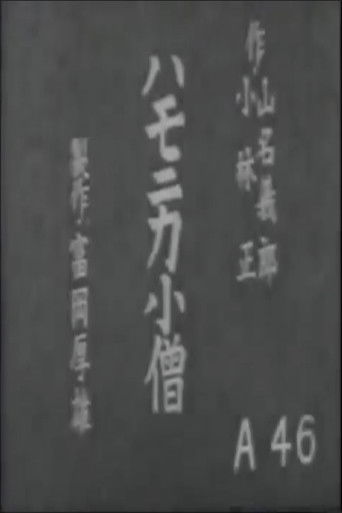 作
山名義郎
小林正
ハモニカ小僧
製作・富岡厚雄
A 46